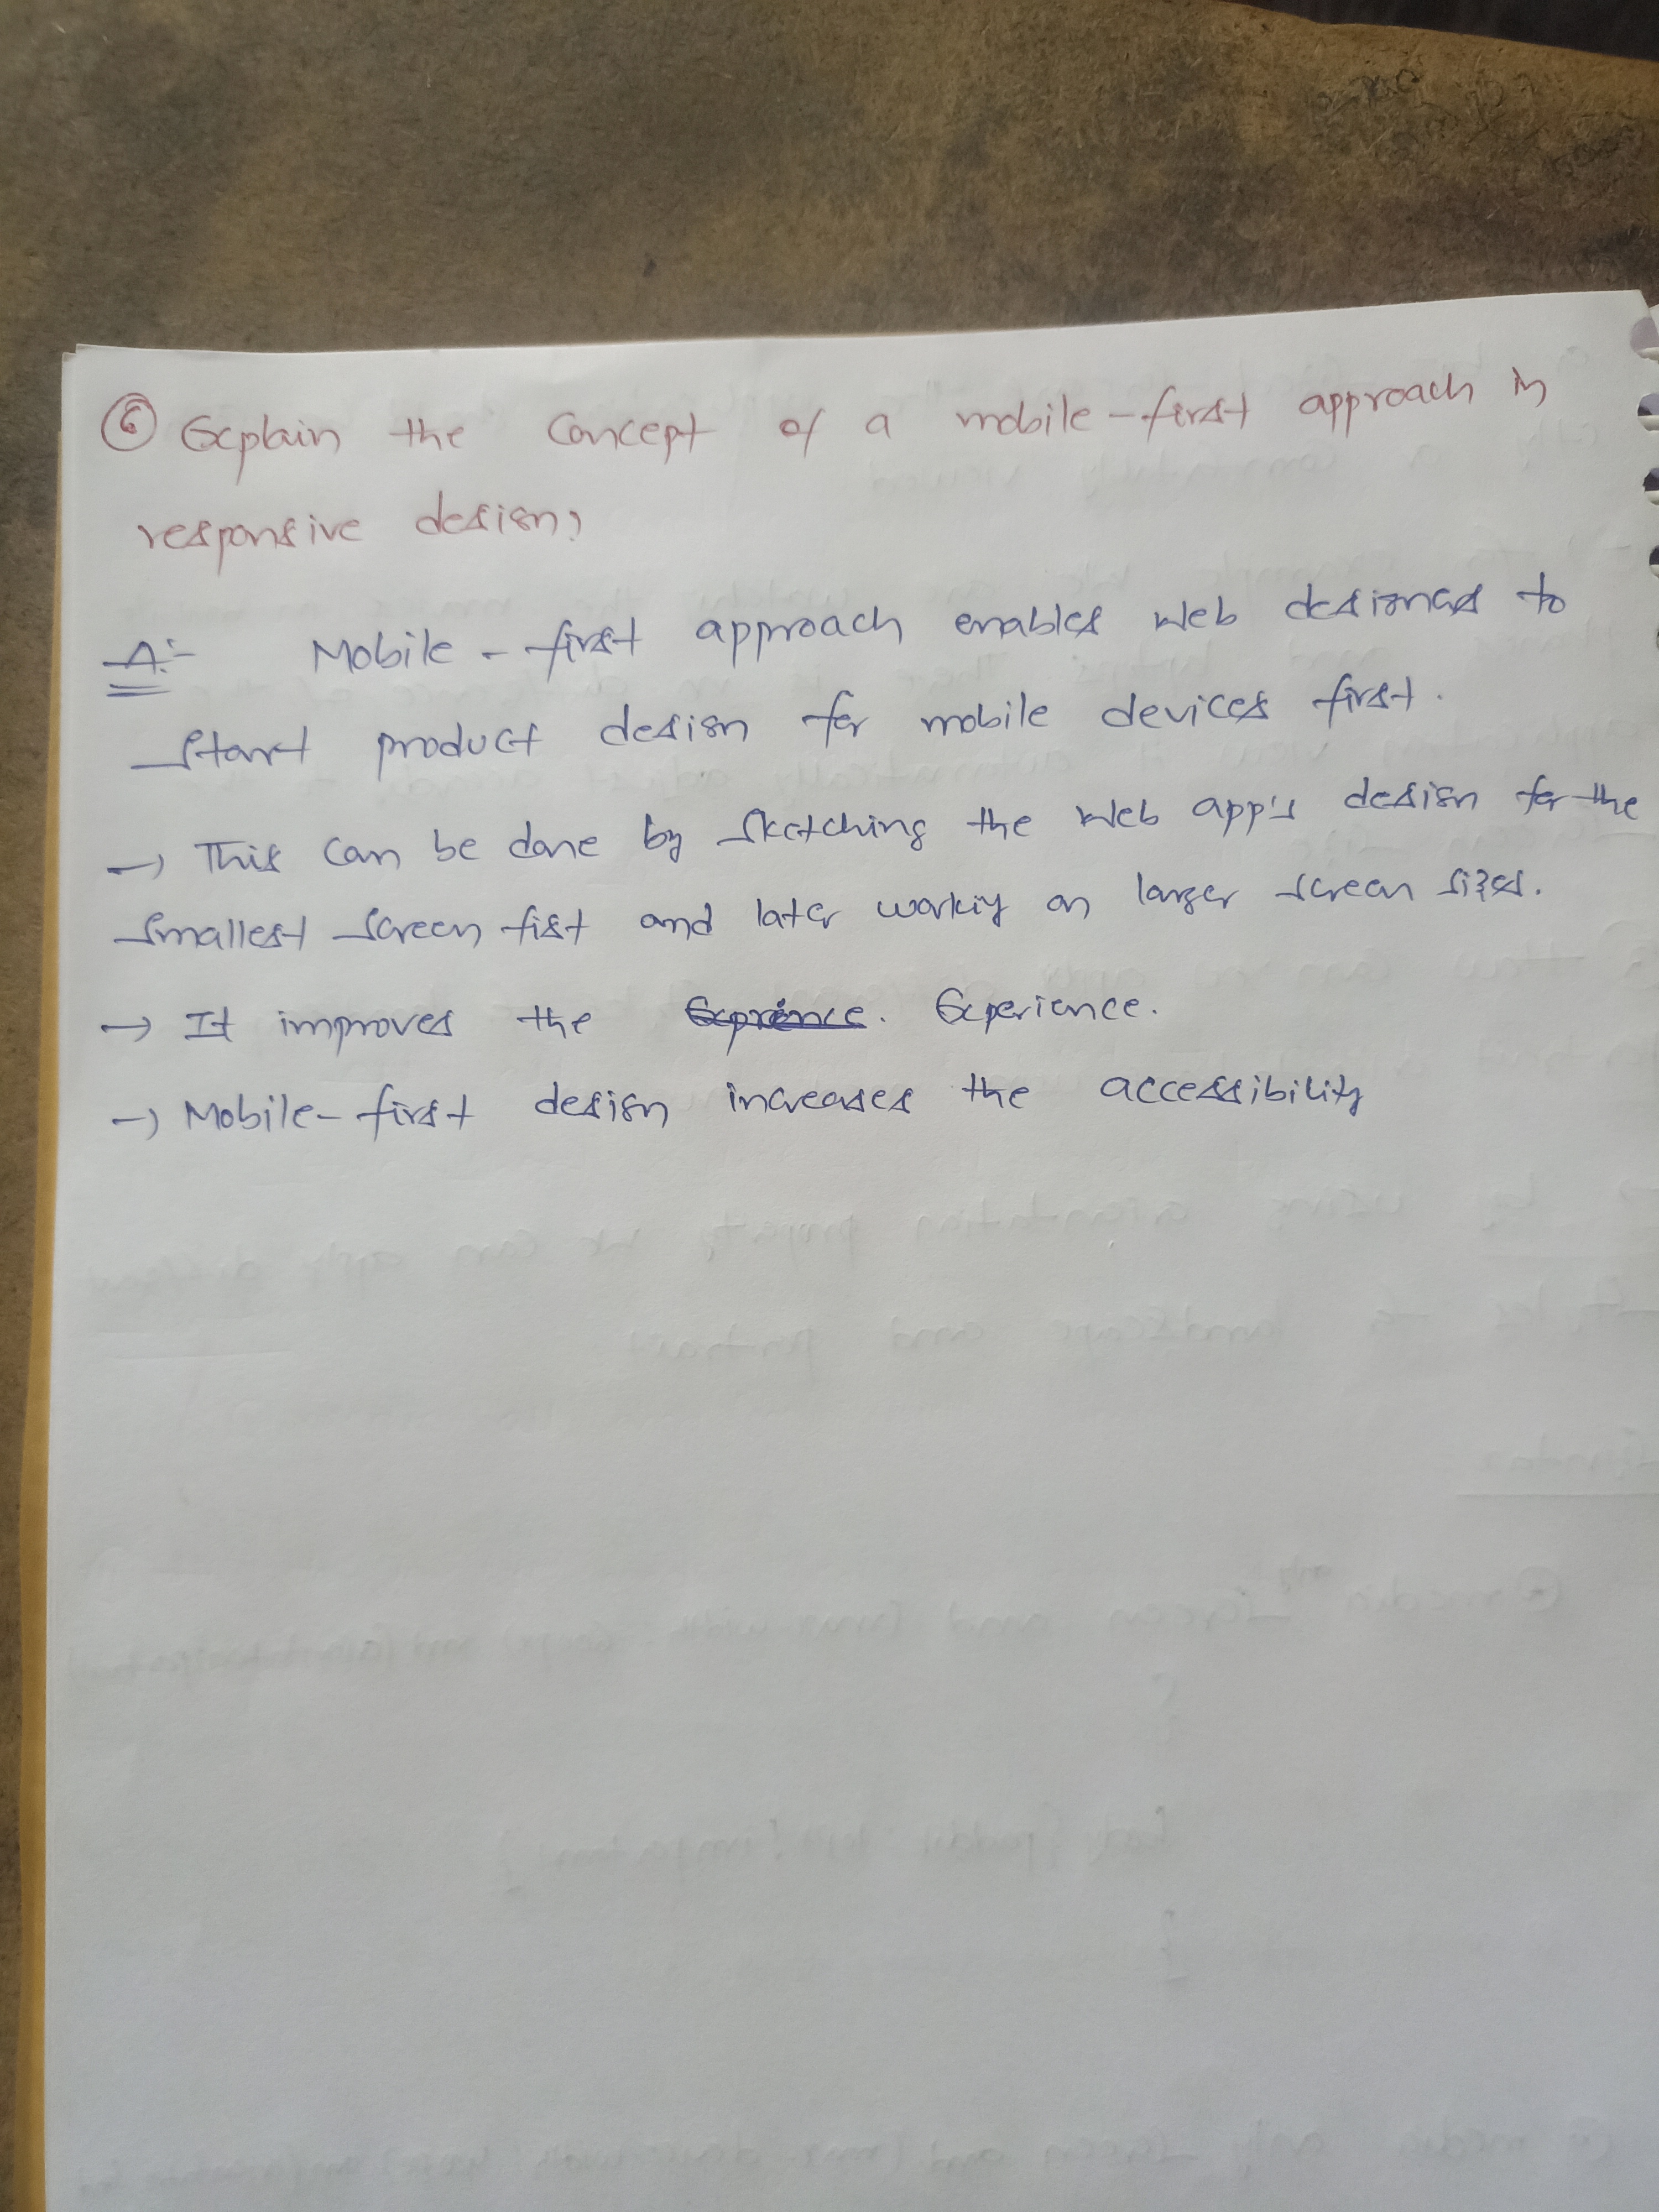 6 Explain the Concept of a mobile-first approach in
responsive design?
A:- Mobile-first approach enables web designers to
start product design for mobile devices first.
→ This can be done by sketching the web app's design for the
smallest screen fist and later workiy on larger screen sizes.
→ It improves the Exprience. Experience.
→ Mobile-first design increases the accessibility